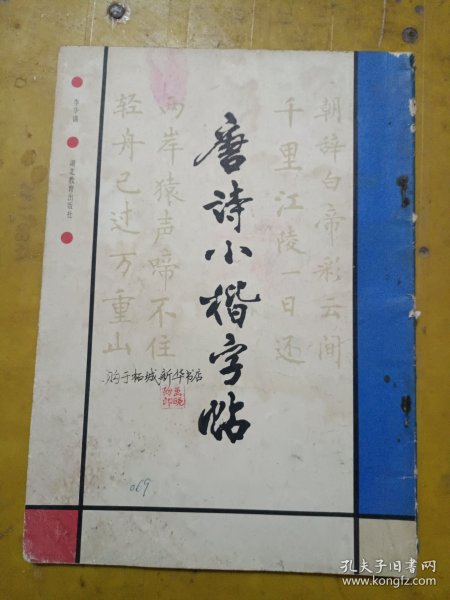 唐诗小楷字帖
朝辞白帝彩云间
千里江陵一日还
两岸猿声啼不住
轻舟已过万重山
湖北教育出版社
购于柘城新华书店
069
孔夫子旧书网
www.kongfz.com